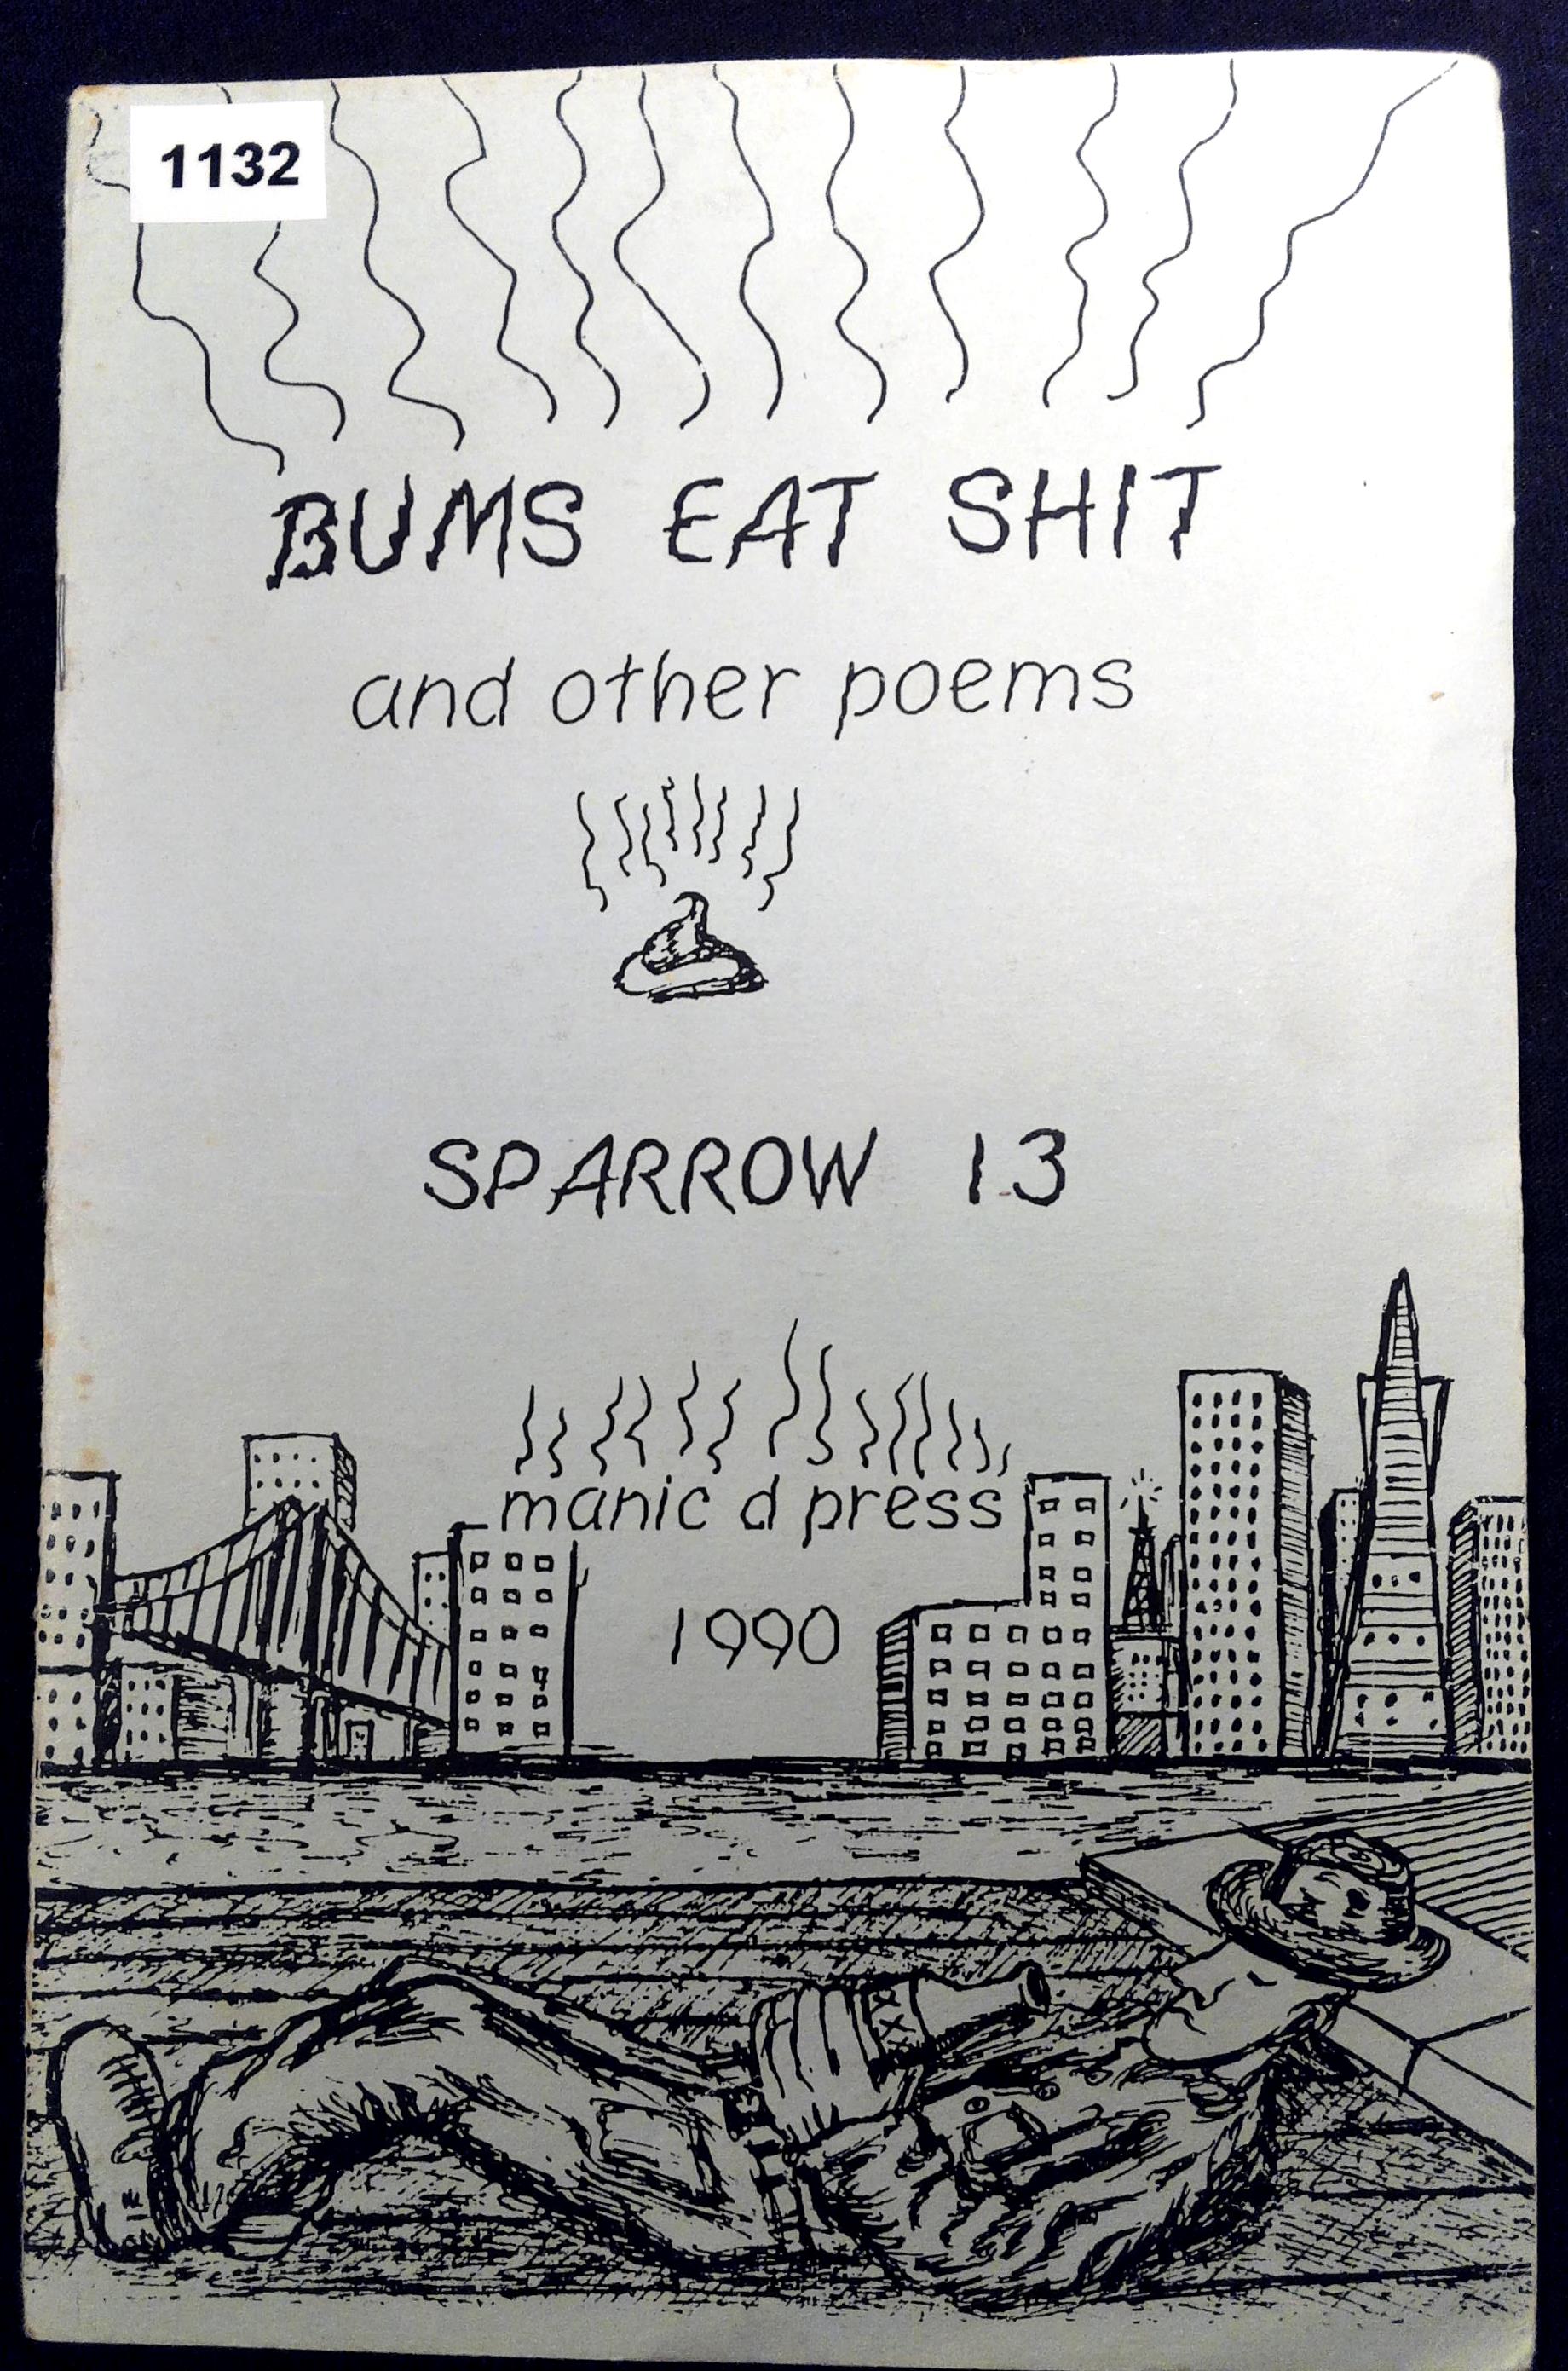 1132
BUMS EAT SHIT
and other poems
SPARROW 13
manic d press
1990